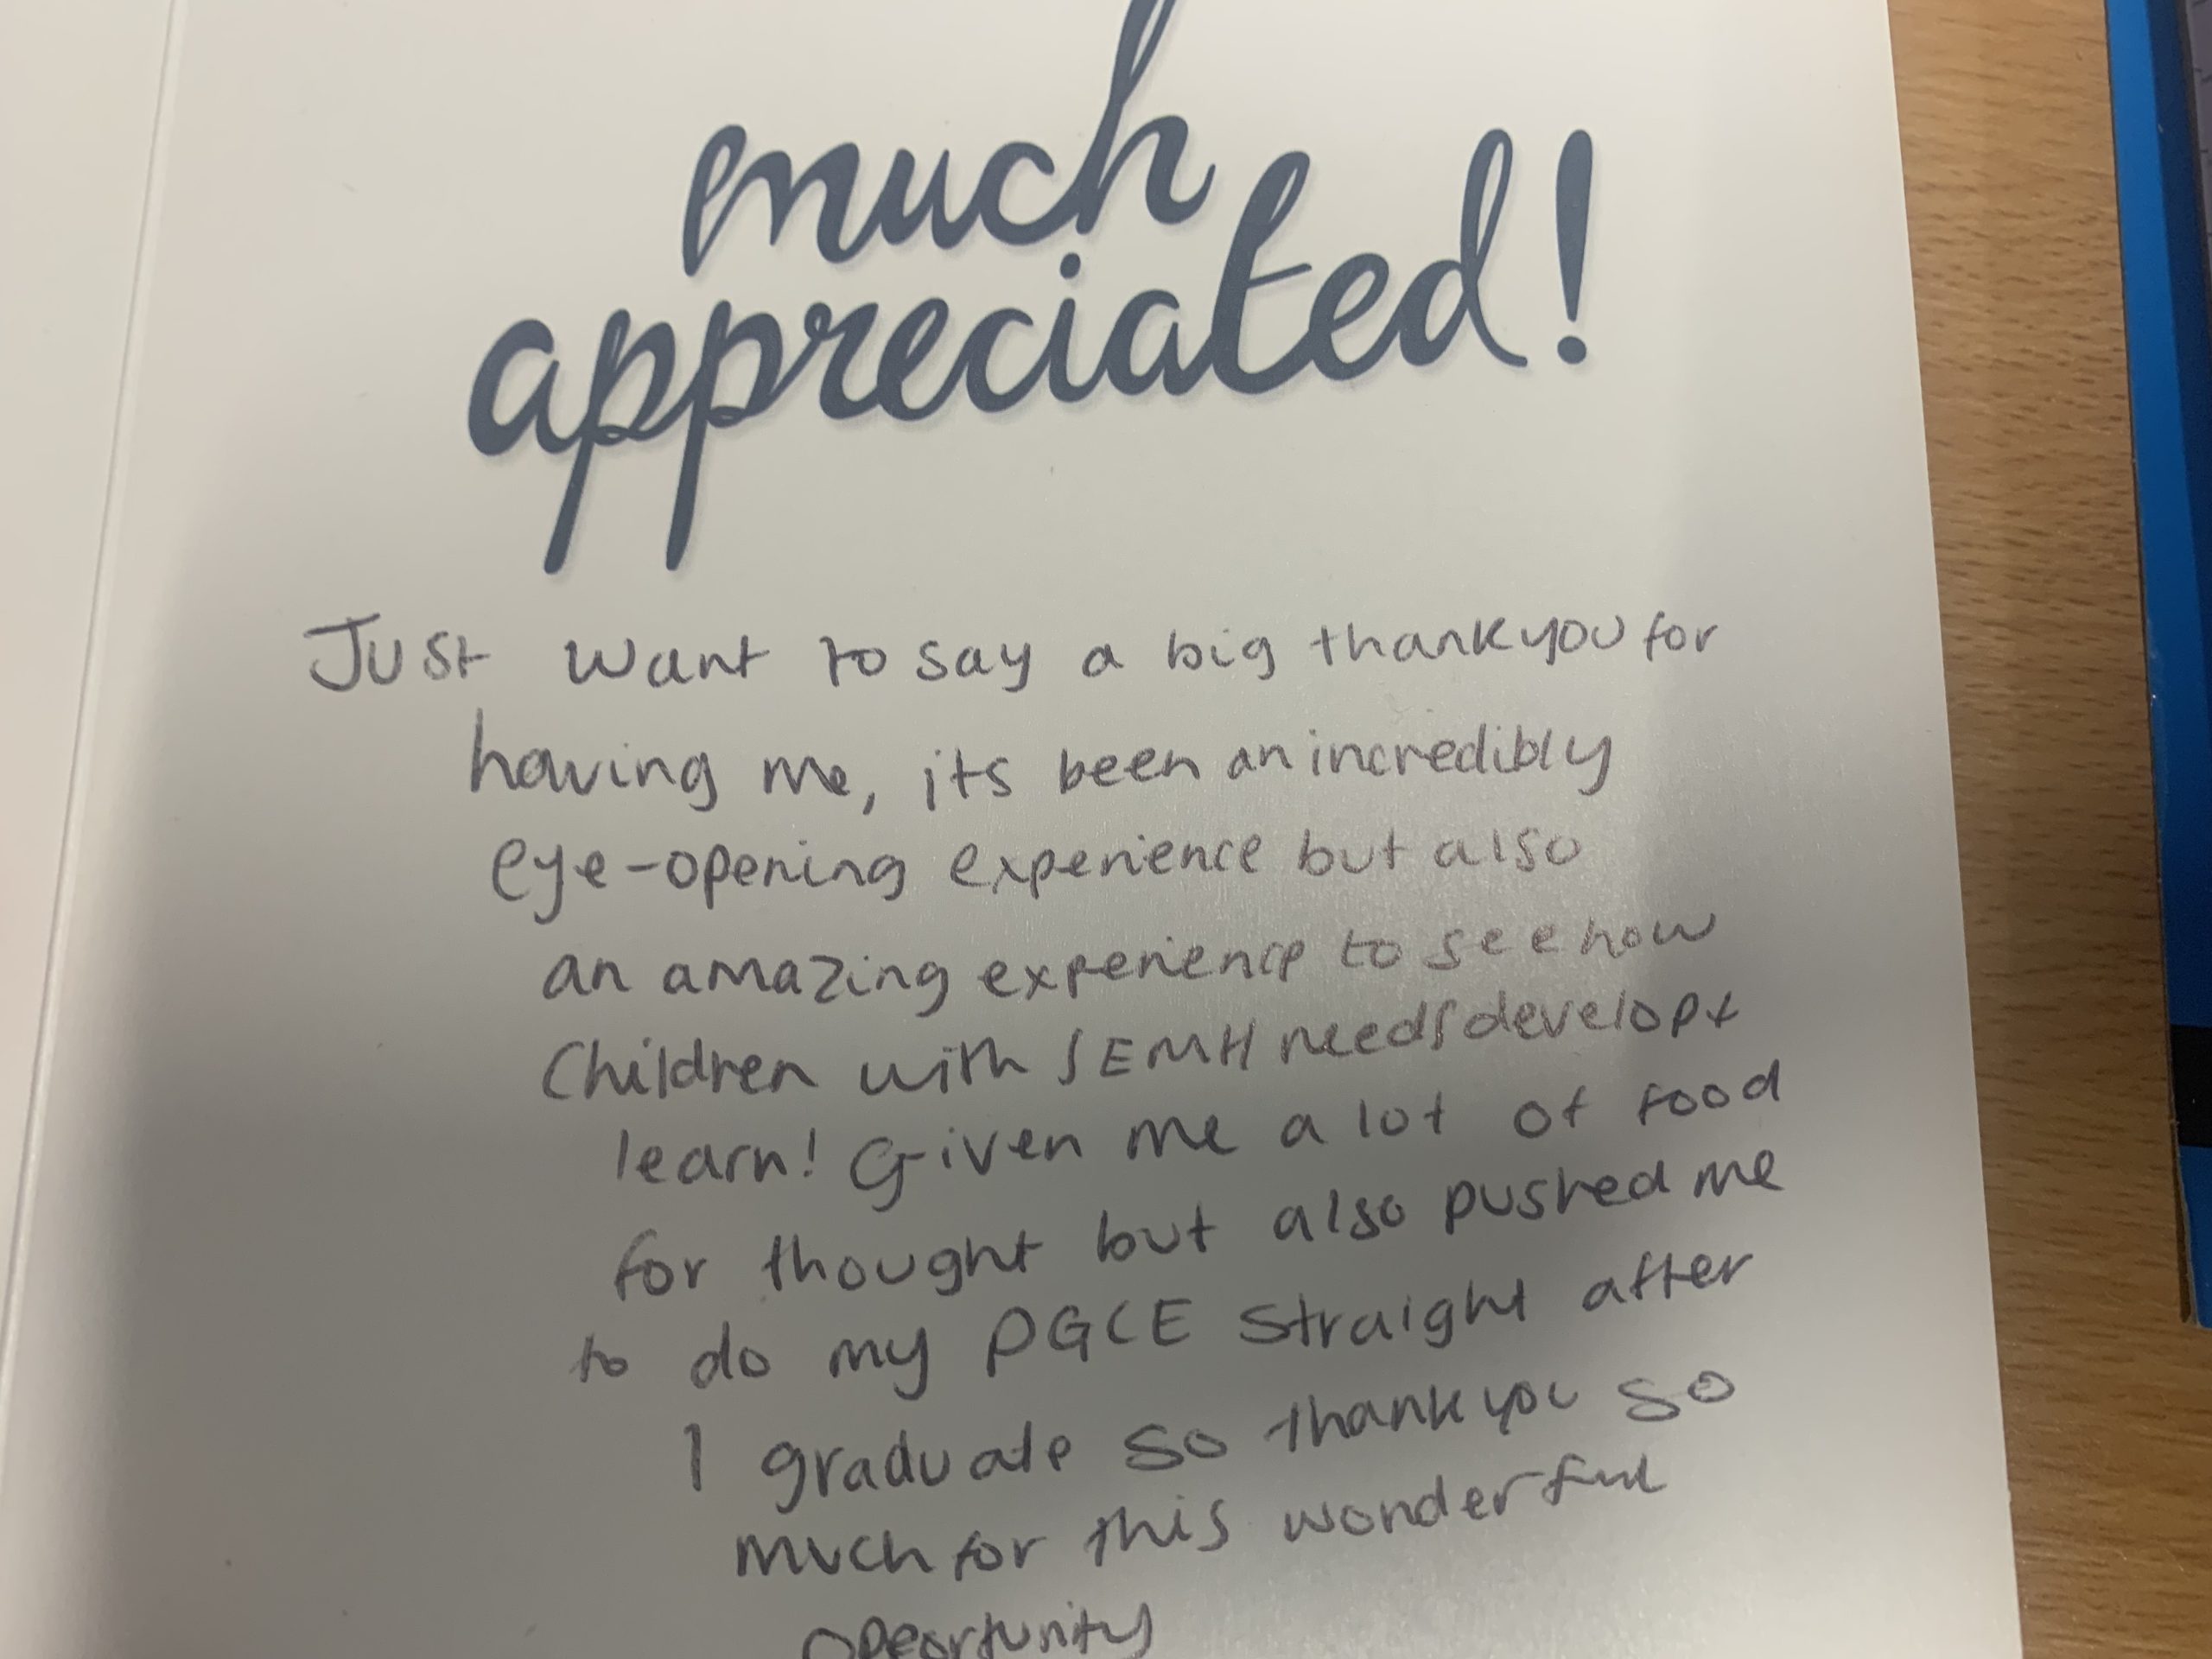 much
appreciated!
Just want to say a big thankyou for
having me, its been an incredibly
eye-opening experience but also
an amazing experience to see how
Children with SEMH needs develop +
learn! Given me a lot of food
for thought but also pushed me
to do my PGCE straight after
I graduate so thankyou so
much for this wonderful
opeortunity